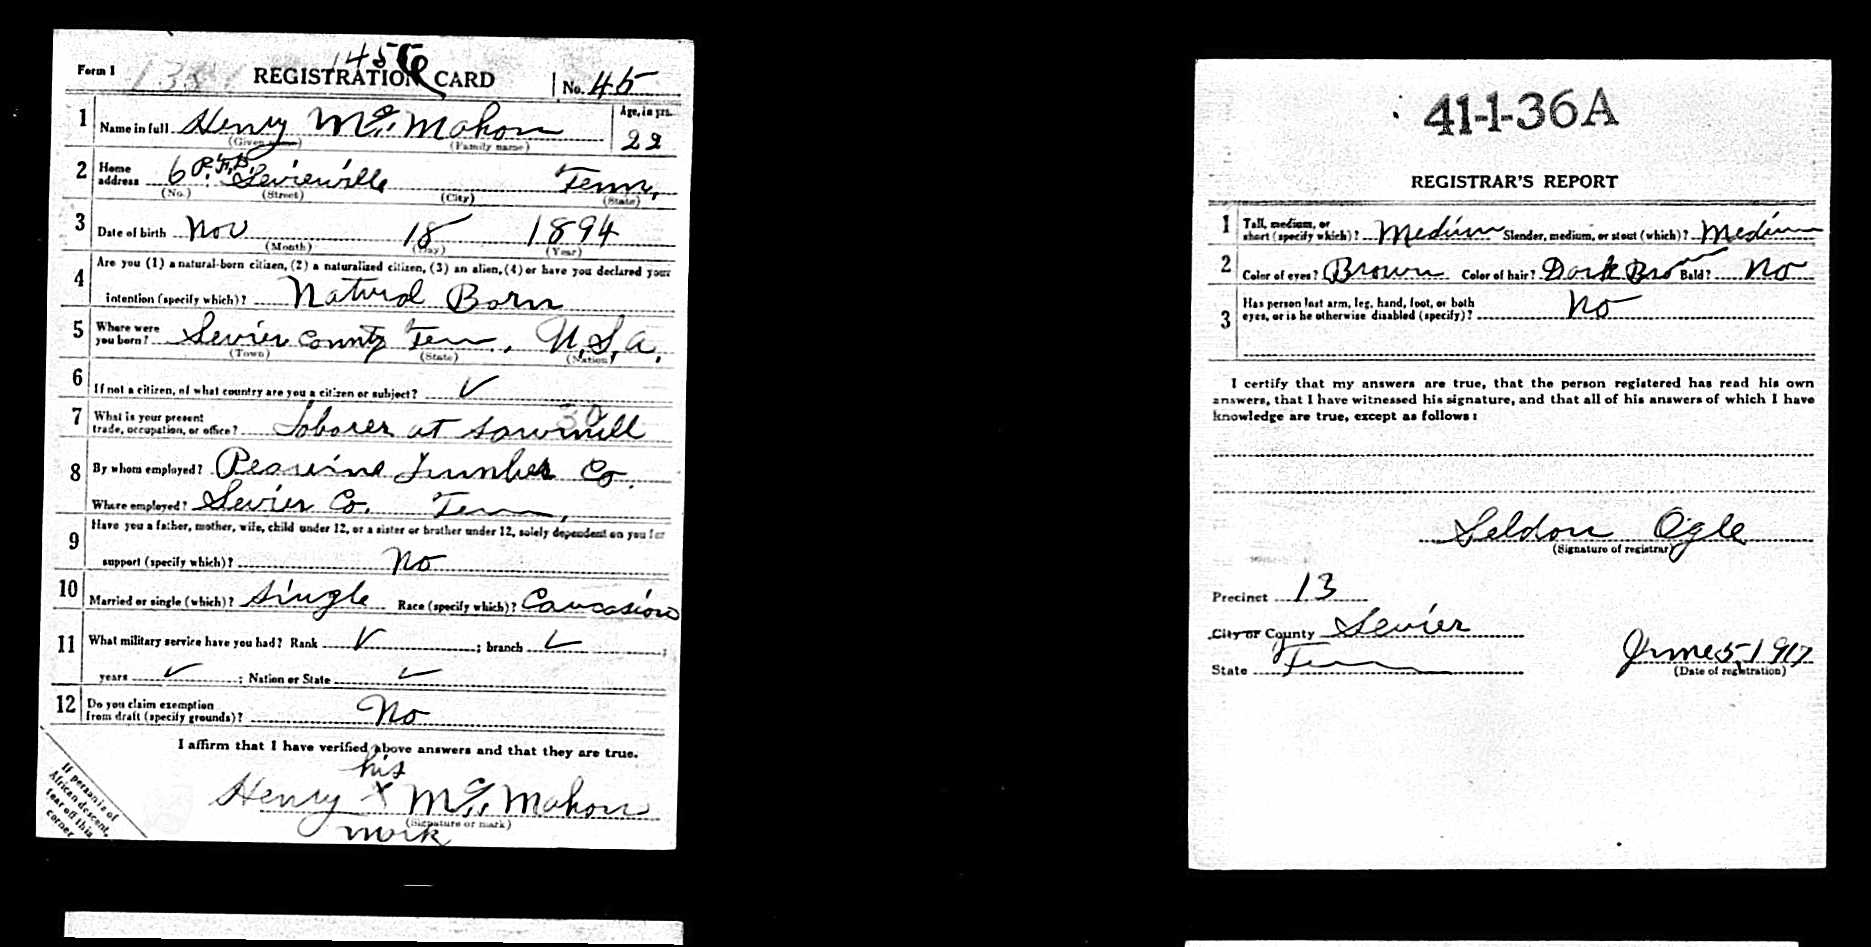 1456
Form 1 REGISTRATION CARD No. 45
1 Name in full Henry Mc Mahon Age, in yrs. 22
(Given name) (Family name)
2 Home address 6 R.F.D. Sevierville Tenn.
(No.) (Street) (City) (State)
3 Date of birth Nov 18 1894
(Month) (Day) (Year)
4 Are you (1) a natural-born citizen, (2) a naturalized citizen, (3) an alien, (4) or have you declared your
intention (specify which)? Natural Born
5 Where were you born? Sevier County Tenn. U.S.A.
(Town) (State) (Nation)
6 If not a citizen, of what country are you a citizen or subject? ✓
7 What is your present trade, occupation, or office? Laborer at Sawmill
8 By whom employed? Peavine Lumber Co.
Where employed? Sevier Co. Tenn.
9 Have you a father, mother, wife, child under 12, or a sister or brother under 12, solely dependent on you for
support (specify which)? No
10 Married or single (which)? Single Race (specify which)? Caucasion
11 What military service have you had? Rank ✓ ; branch ✓ ;
years ✓ ; Nation or State ✓
12 Do you claim exemption from draft (specify grounds)? No
I affirm that I have verified above answers and that they are true.
his
Henry X Mc Mahon
(Signature or mark)
mark
If person is of
African descent,
tear off this
corner
41-1-36A
REGISTRAR'S REPORT
1 Tall, medium, or short (specify which)? Medium Slender, medium, or stout (which)? Medium
2 Color of eyes? Brown Color of hair? Dark Brown Bald? No
3 Has person lost arm, leg, hand, foot, or both
eyes, or is he otherwise disabled (specify)? No
I certify that my answers are true, that the person registered has read his own
answers, that I have witnessed his signature, and that all of his answers of which I have
knowledge are true, except as follows:
Seldon Ogle
(Signature of registrar)
Precinct 13
City or County Sevier
State Tenn June 5, 1917
(Date of registration)